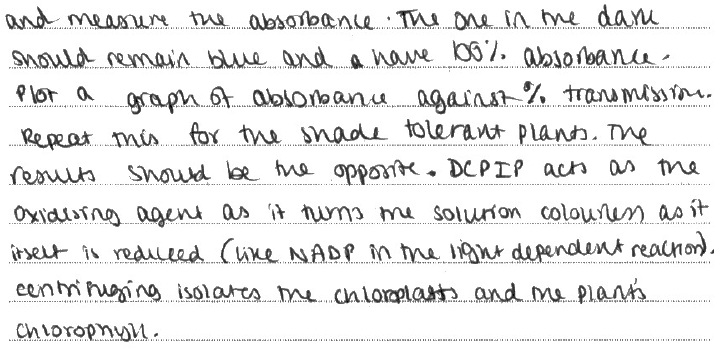 and measure the absorbance. The one in the dark
should remain blue and a have 100% absorbance.
Plot a graph of absorbance against % transmission.
Repeat this for the shade tolerant plants. The
results should be the opposite. DCPIP acts as the
oxidising agent as it turns the solution colourless as it
itself is reduced (like NADP in the light dependent reaction).
centrifuging isolates the chloroplasts and the plants
chlorophyll.